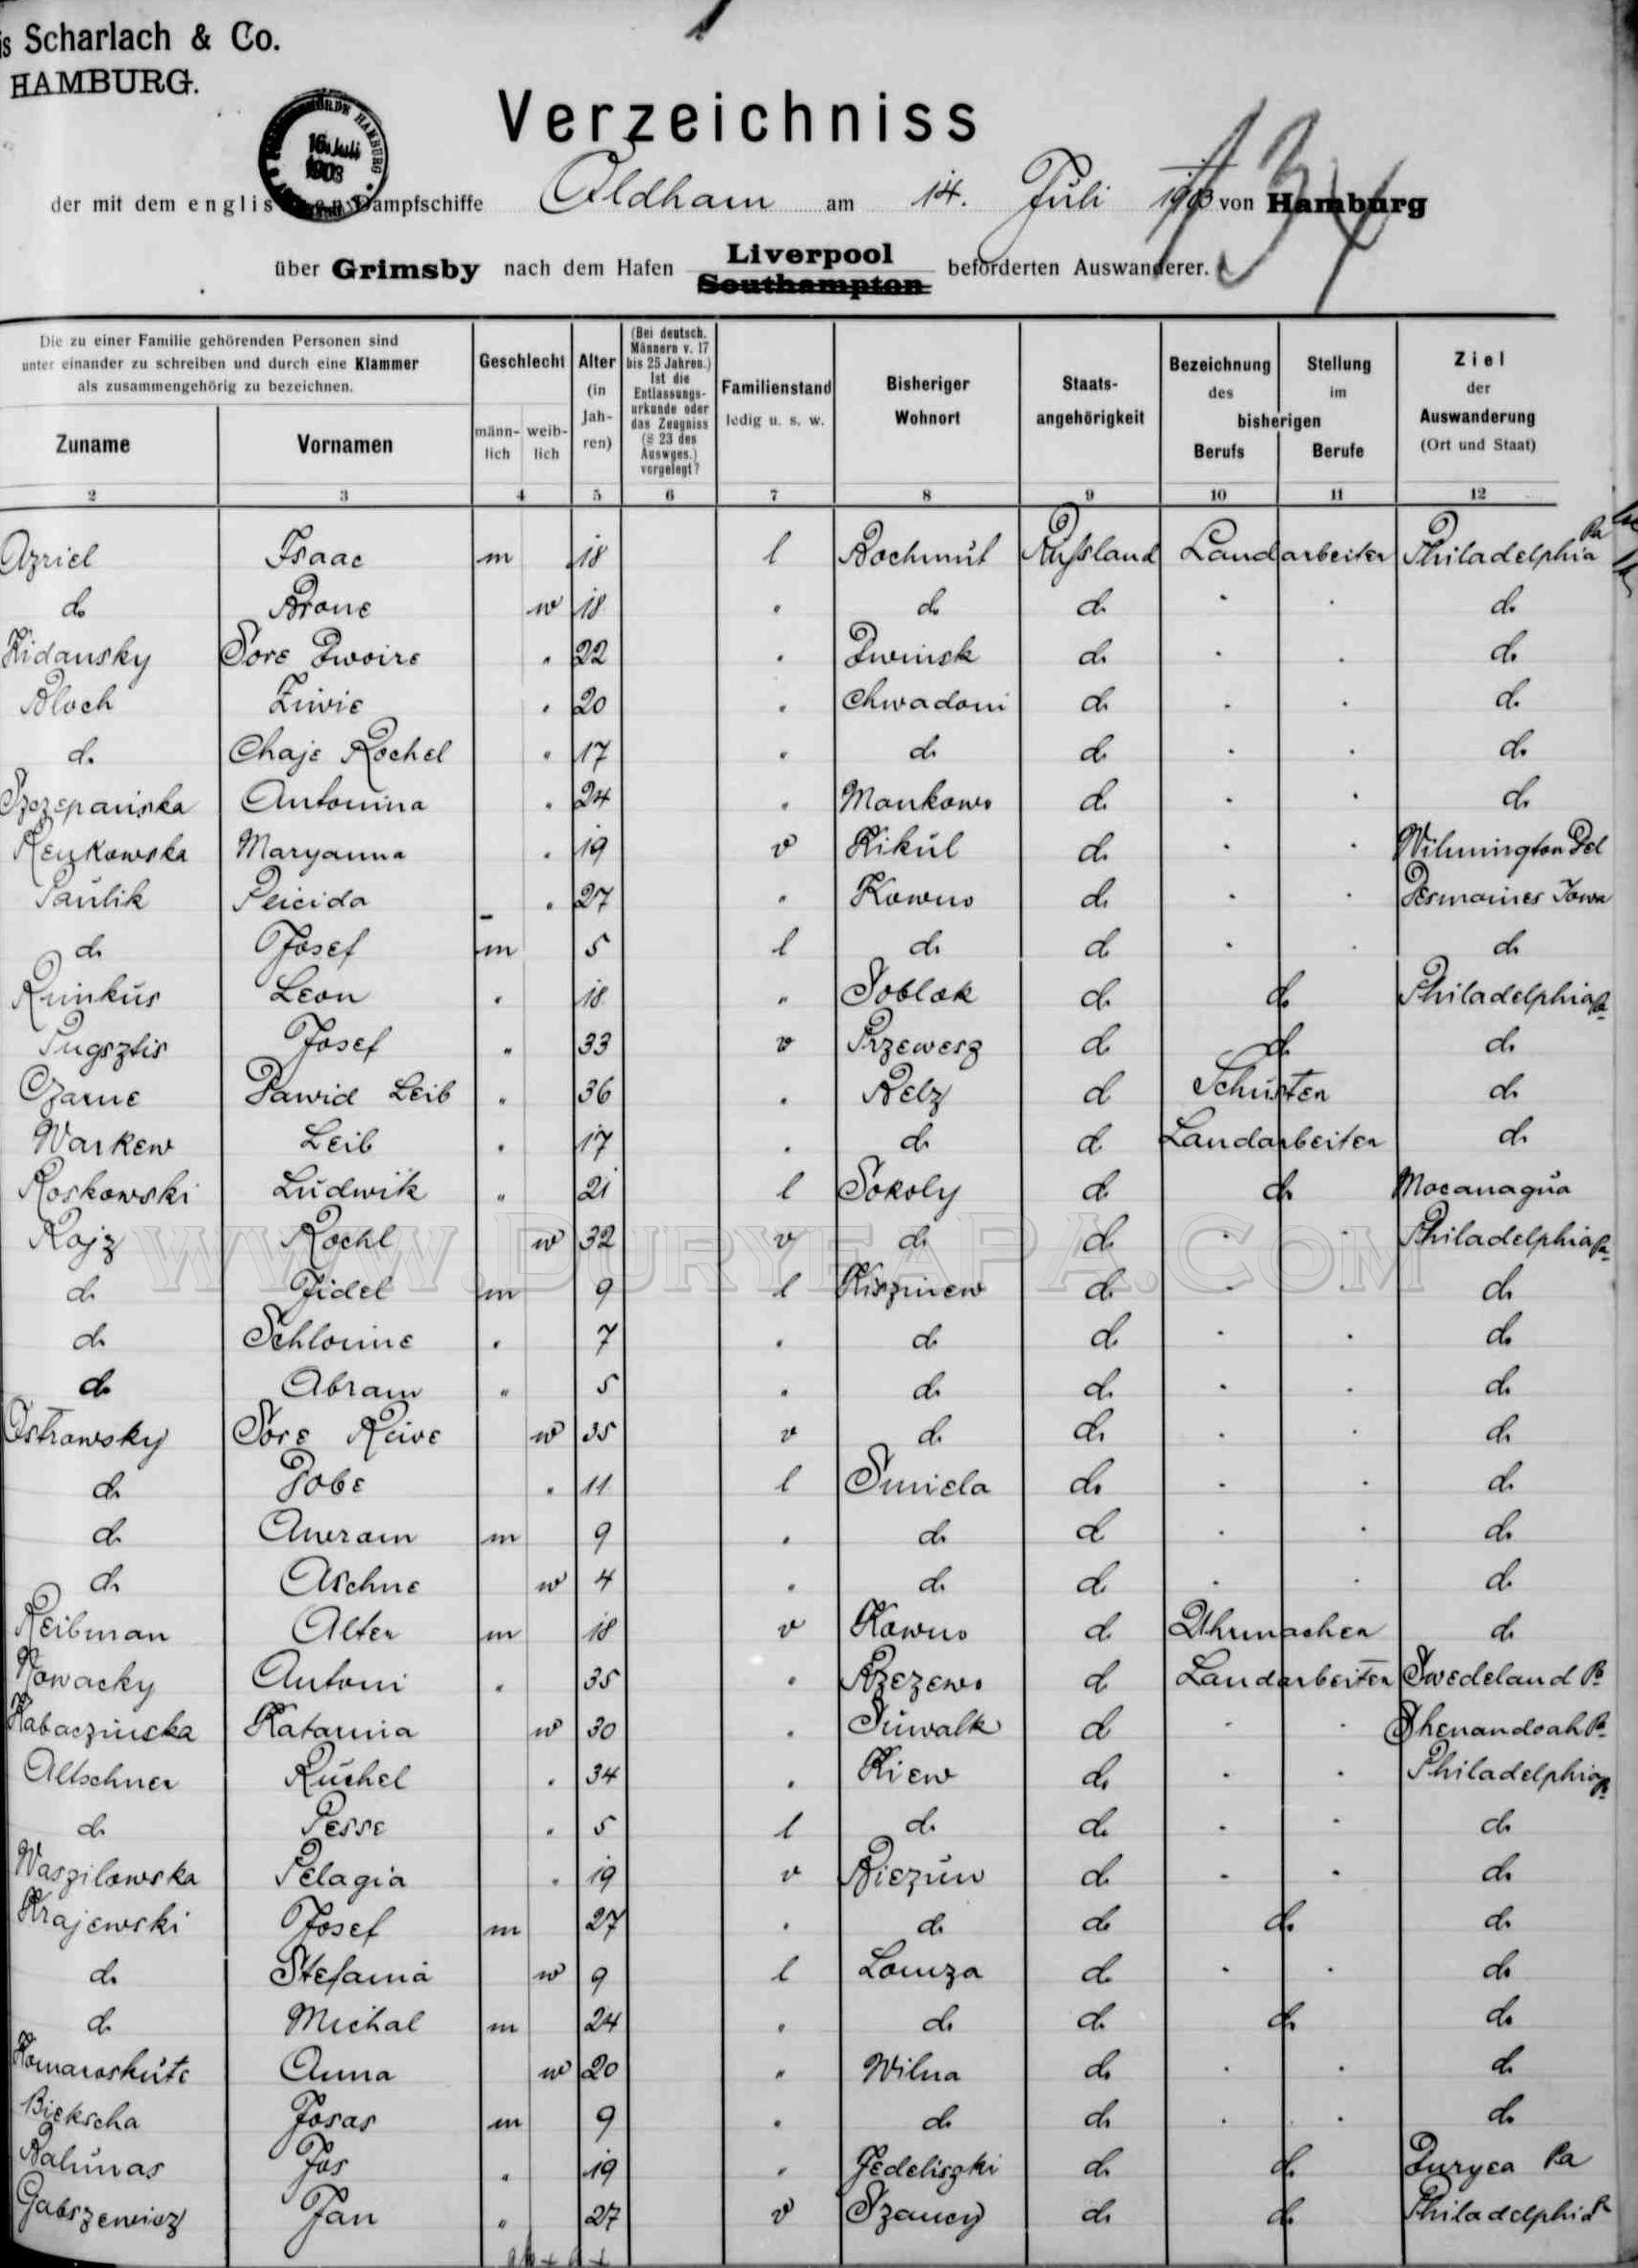 is Scharlach & Co.
HAMBURG.
16. Juli
1903
HAMBURG
Verzeichniss
134
der mit dem englischen Dampfschiffe Oldham am 14. Juli 1903 von Hamburg
über Grimsby nach dem Hafen Liverpool beförderten Auswanderer.
Southampton
Die zu einer Familie gehörenden Personen sind
unter einander zu schreiben und durch eine Klammer
als zusammengehörig zu bezeichnen.
Zuname
Vornamen
Geschlecht
männ-lich
weib-lich
Alter
(in
Jah-
ren)
(Bei deutsch.
Männern v. 17
bis 25 Jahren.)
Ist die
Entlassungs-
urkunde oder
das Zeugniss
(§ 23 des
Auswges.)
vorgelegt?
Familienstand
ledig u. s. w.
Bisheriger
Wohnort
Staats-
angehörigkeit
Bezeichnung
des
Stellung
im
bisherigen
Berufs
Berufe
Ziel
der
Auswanderung
(Ort und Staat)
2 3 4 5 6 7 8 9 10 11 12
Azriel Isaac m 18 l Bochmut Russland Landarbeiter Philadelphia Pa
do Brone w 18 " do do " " do
Zidansky Sore Dwoire " 22 " Dwinsk do " " do
Bloch Ziwie " 20 " Chwadoni do " " do
do Chaje Rochel " 17 " do do " " do
Szczepanska Antonina " 24 " Mankowo do " " do
Renkowska Maryanna " 19 v Kikul do " " Wilmington Del
Paulik Peicida " 27 " Kowno do " " Desmoines Iowa
do Josef m 5 l do do " " do
Runkus Leon " 18 " Soblok do do Philadelphia Pa
Pugsztis Josef " 33 v Przewerg do do do
Czarne Dawid Leib " 36 " Belz do Schuster do
Warkew Leib " 17 " do do Landarbeiter do
Roskowski Ludwik " 21 l Sokoly do do Mocanagua
Rojz Rochl w 32 v do do " " Philadelphia Pa
do Fidel m 9 l Kiszinew do " " do
do Schloime " 7 " do do " " do
do Abram " 5 " do do " " do
Ostrowsky Sore Reive w 35 v do do " " do
do Dobe " 11 l Smiela do " " do
do Awram m 9 " do do " " do
do Aschne w 4 " do do " " do
Reibman Alter m 18 v Kowno do Uhrmacher do
Nowacky Antoni " 35 " Rzezewo do Landarbeiter Swedeland Pa
Kabaczinska Katarina w 30 " Suwalk do " " Shenandoah Pa
Altschner Ruchel " 34 " Kiew do " " Philadelphia Pa
do Pesse " 5 l do do " " do
Waszilowska Pelagia " 19 v Biezun do " " do
Krajewski Josef m 27 " do do do do
do Stefania w 9 l Lomza do " " do
do Michal m 24 " do do do do
Komaroskute Anna w 20 " Wilna do " " do
Biekscha Josas m 9 " do do " " do
Balunas Jos " 19 " Jedeliszki do do Duryea Pa
Gabszewicz Jan " 27 v Szancy do do Philadelphia Pa
WWW.DURYEAPA.COM